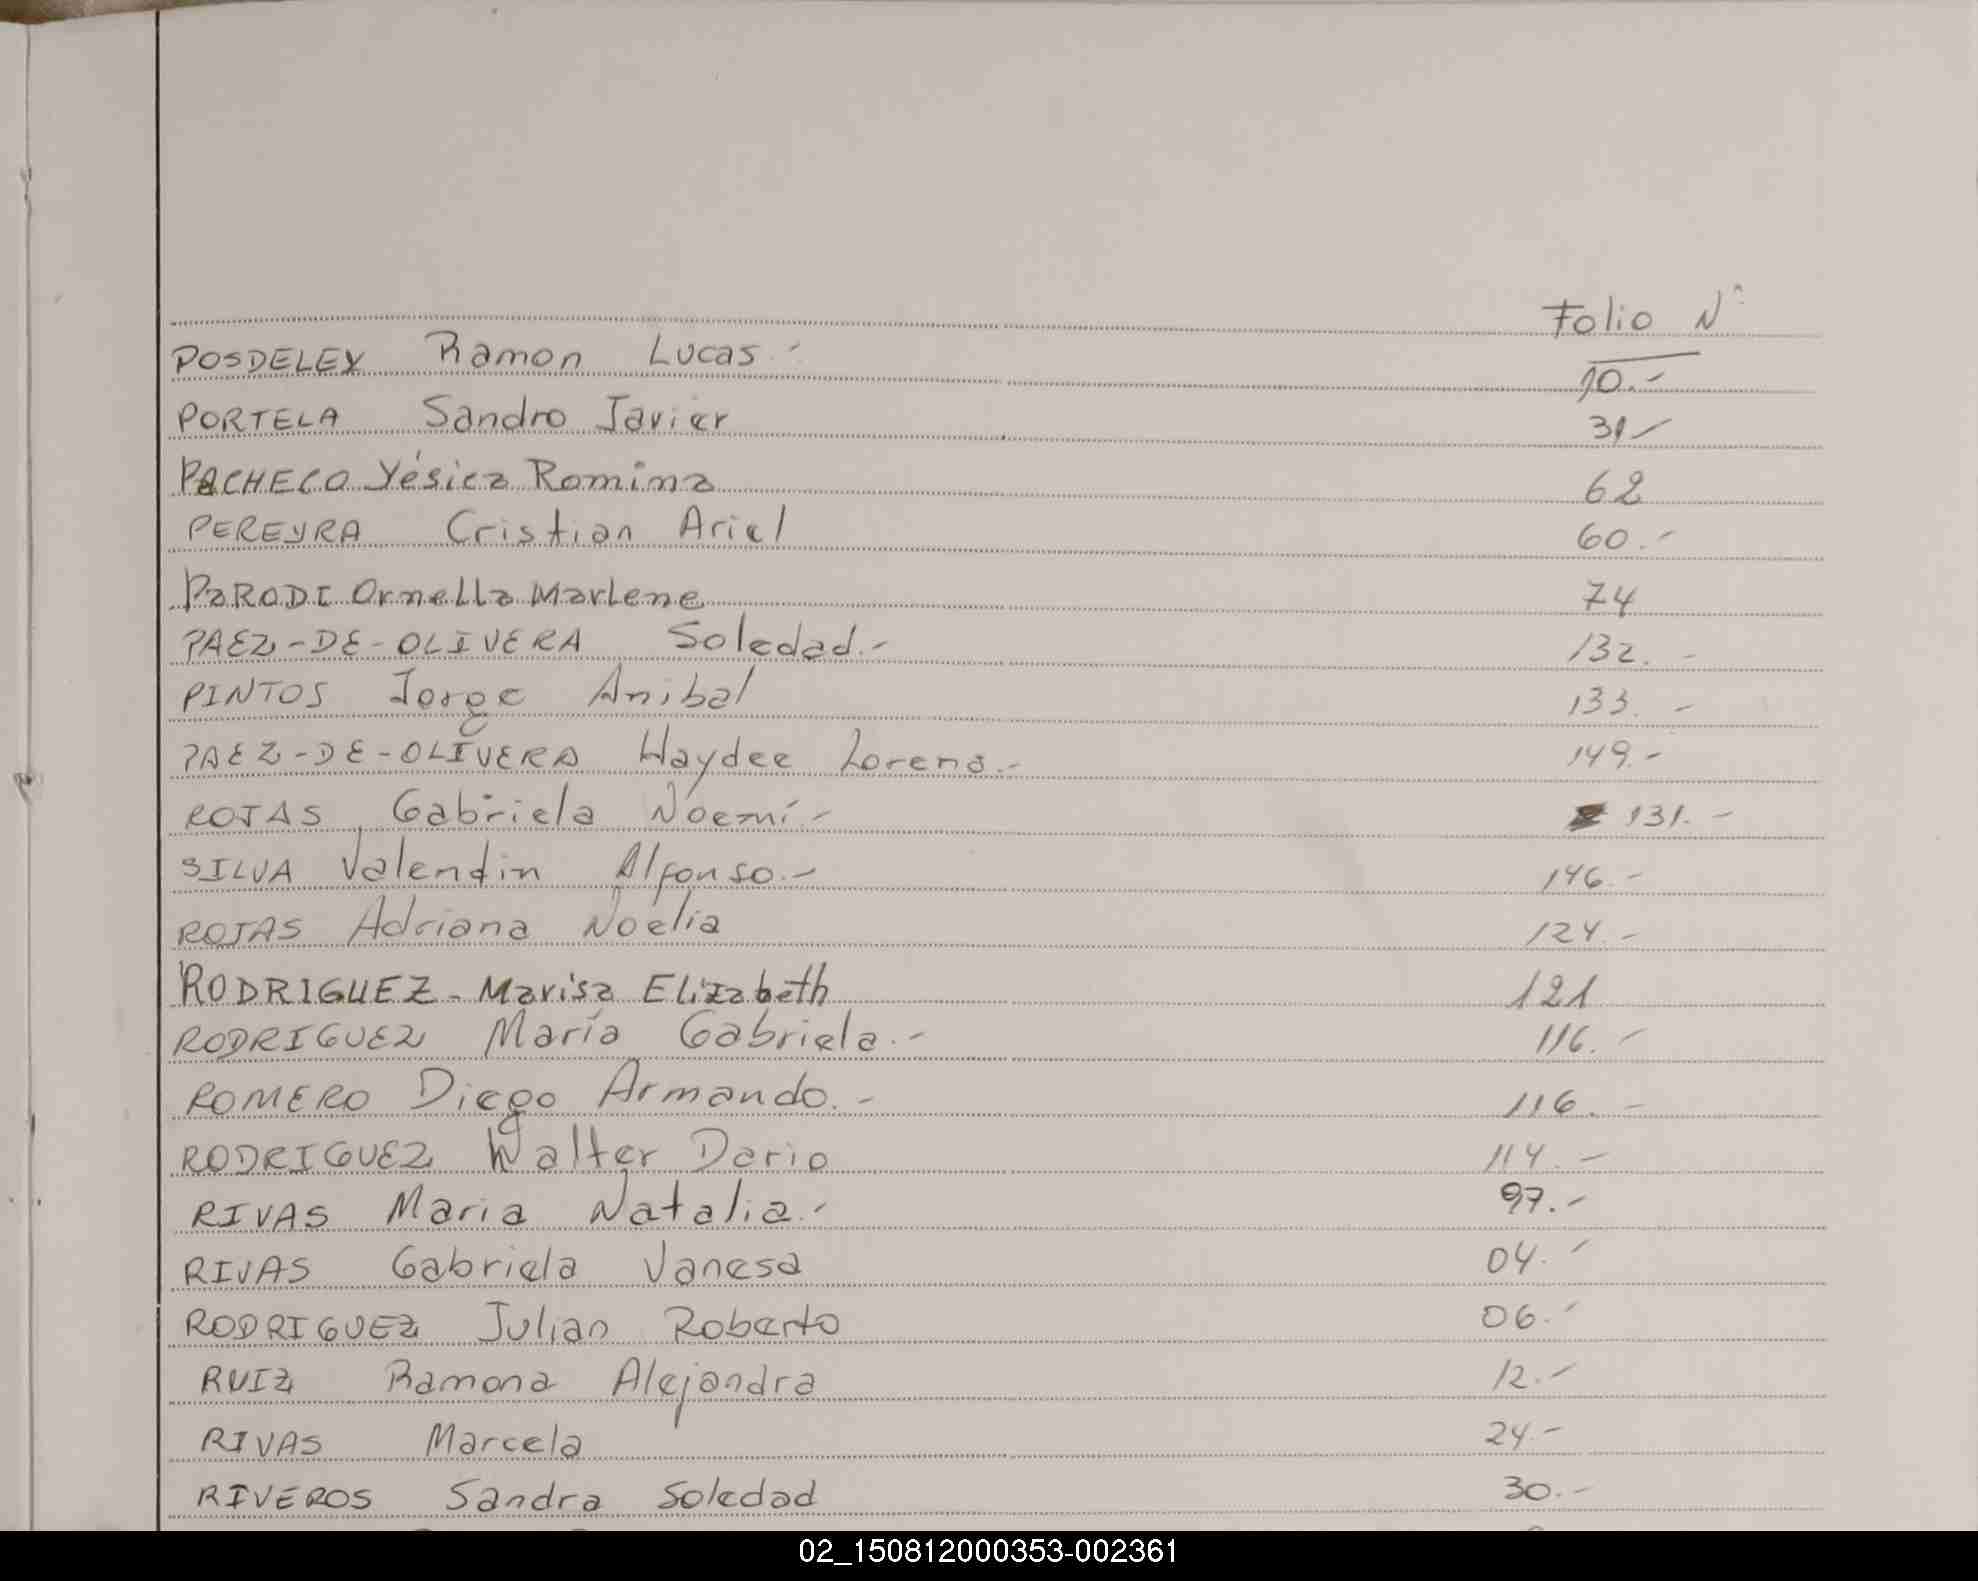 Folio N°
POSDELEY Ramon Lucas.- 10.-
PORTELA Sandro Javier 31-
PACHECO Yésica Romina 62
PEREYRA Cristian Ariel 60.-
PARODI Ornella Marlene 74
PAEZ-DE-OLIVERA Soledad.- 132.-
PINTOS Jorge Anibal 133.-
PAEZ-DE-OLIVERA Haydee Lorena.- 149.-
ROJAS Gabriela Noemí.- 131.-
SILVA Valendin Alfonso.- 146.-
ROJAS Adriana Noelia 124.-
RODRIGUEZ - Marisa Elizabeth 121
RODRIGUEZ María Gabriela.- 116.-
ROMERO Diego Armando.- 116.-
RODRIGUEZ Walter Dario 114.-
RIVAS Maria Natalia.- 97.-
RIVAS Gabriela Vanesa 04.-
RODRIGUEZ Julian Roberto 06.-
RUIZ Ramona Alejandra 12.-
RIVAS Marcela 24.-
RIVEROS Sandra Soledad 30.-
02_150812000353-002361